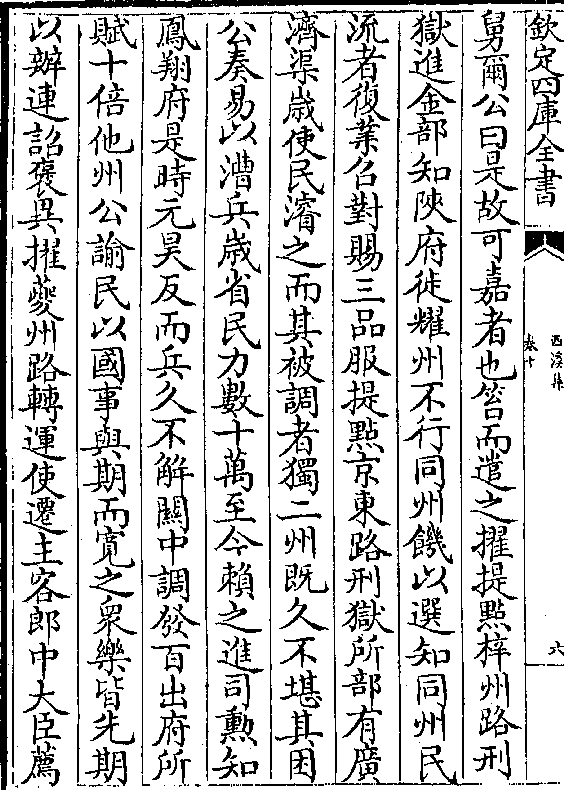 欽定四庫全書
西溪集
卷十
六
舅爾公曰是故可嘉者也笞而遣之擢提點梓州路刑
獄進金部知陝府徙耀州不行同州饑以選知同州民
流者復業召對賜三品服提點京東路刑獄所部有廣
濟渠歳使民濬之而其被調者獨二州既久不堪其困
公奏易以漕兵歳省民力數十萬至今賴之進司勲知
鳳翔府是時元昊反而兵久不解關中調發百出府所
賦十倍他州公諭民以國事與期而寛之衆樂皆先期
以辦連詔褒異擢夔州路轉運使遷主客郎中大臣薦